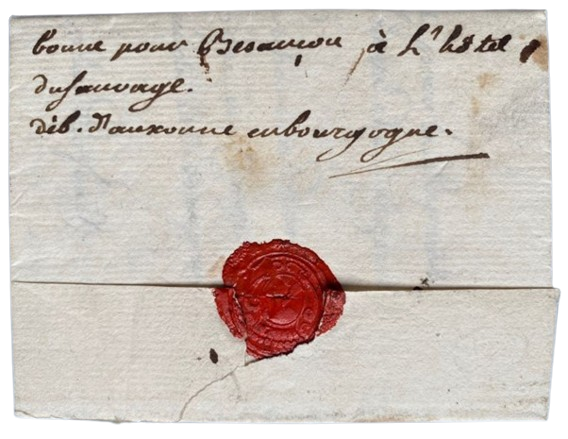 bonne pour Besançon à L'hôtel
du sauvage.
déb. d'auxonne en bourgogne.